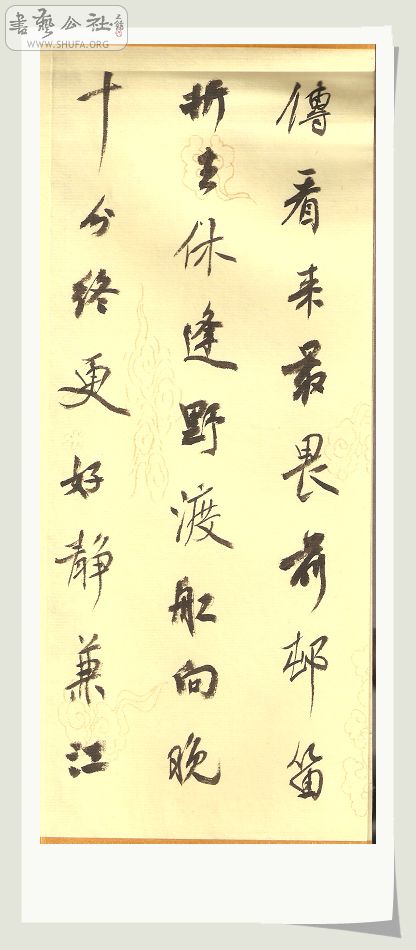 書藝公社
WWW.SHUFA.ORG
傳看来最畏前邨笛
折去休逢野渡舡向晚
十分終更好静兼江